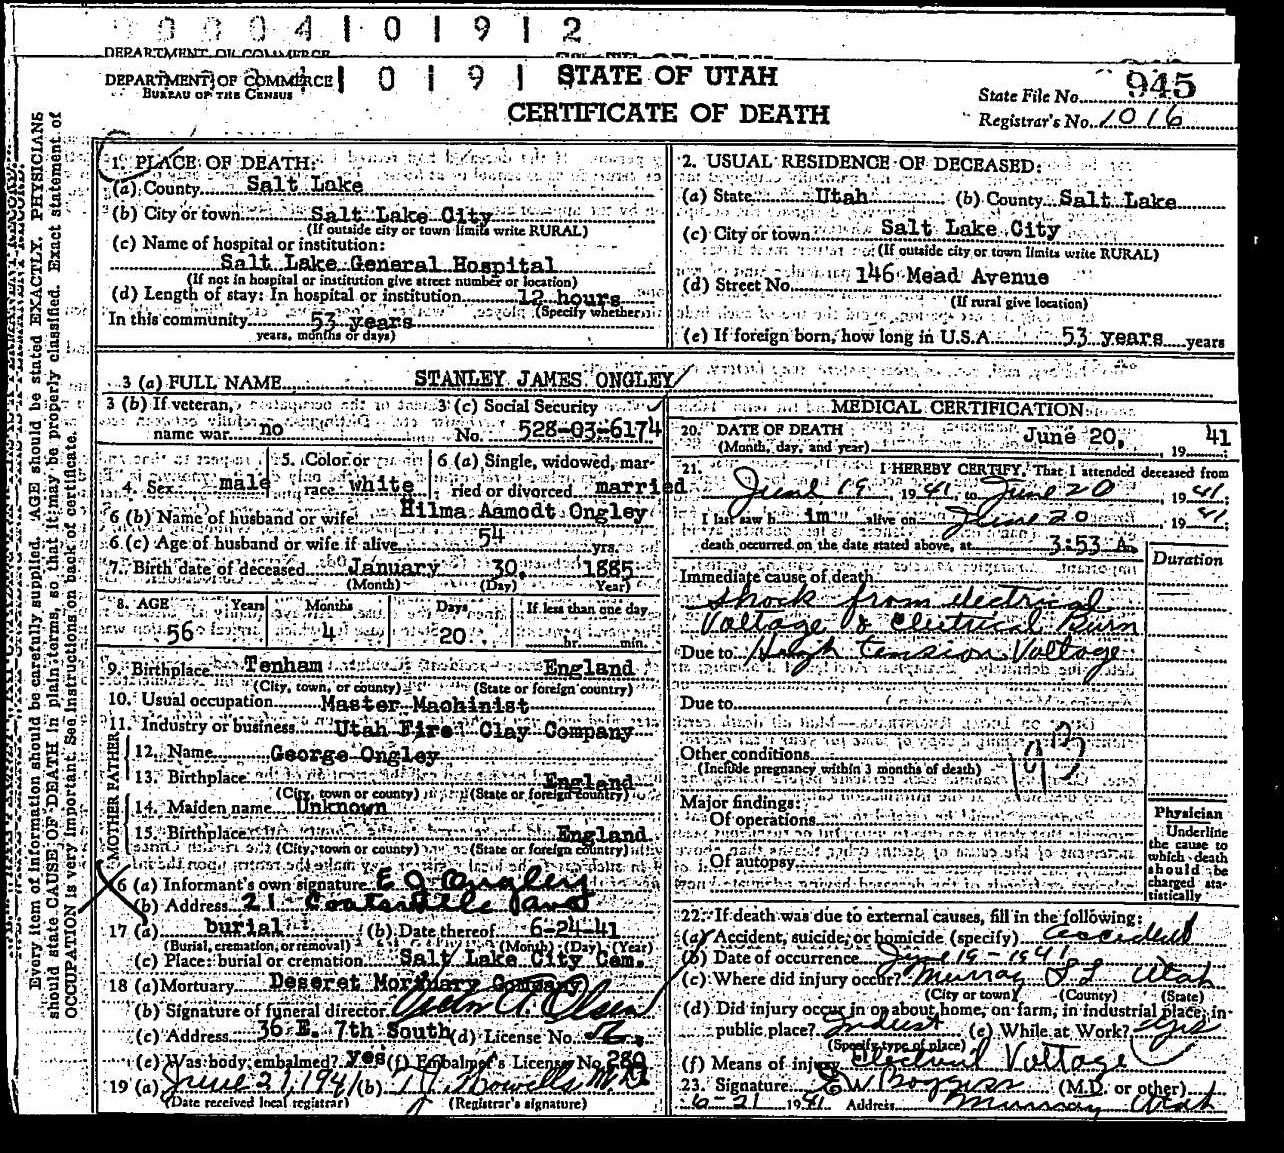 0 0 0 0 4 1 0 1 9 1 2
DEPARTMENT OF COMMERCE
DEPARTMENT OF COMMERCE
BUREAU OF THE CENSUS
STATE OF UTAH
CERTIFICATE OF DEATH
945
State File No.
Registrar's No. 1016
Every item of information should be carefully supplied. AGE should be stated EXACTLY. PHYSICIANS
should state CAUSE OF DEATH in plain terms, so that it may be properly classified. Exact statement of
OCCUPATION is very important. See instructions on back of certificate.
1. PLACE OF DEATH:
(a) County Salt Lake
(b) City or town Salt Lake City
(If outside city or town limits write RURAL)
(c) Name of hospital or institution:
Salt Lake General Hospital
(If not in hospital or institution give street number or location)
(d) Length of stay: In hospital or institution 12 hours
(Specify whether
In this community 53 years
years, months or days)
2. USUAL RESIDENCE OF DECEASED:
(a) State Utah (b) County Salt Lake
(c) City or town Salt Lake City
(If outside city or town limits write RURAL)
(d) Street No. 146 Mead Avenue
(If rural give location)
(e) If foreign born, how long in U.S.A. 53 years years
3 (a) FULL NAME STANLEY JAMES ONGLEY
3 (b) If veteran, 3 (c) Social Security
name war no No. 528-03-6174
4. Sex male 5. Color or race white 6 (a) Single, widowed, married or divorced married
6 (b) Name of husband or wife Hilma Aamodt Ongley
6 (c) Age of husband or wife if alive 54 yrs.
7. Birth date of deceased January 30, 1885
(Month) (Day) Year)
8. AGE Years Months Days If less than one day
56 4 20 hr. min.
9. Birthplace Tenham England
(City, town, or county) (State or foreign country)
10. Usual occupation Master Machinist
11. Industry or business Utah Fire Clay Company
FATHER
12. Name George Ongley
13. Birthplace England
(City, town or county) (State or foreign country)
MOTHER
14. Maiden name Unknown
15. Birthplace England
(City, town or county) (State or foreign country)
16 (a) Informant's own signature E J Ongley
(b) Address 21 Coatsville Ave
17 (a) burial (b) Date thereof 6-24-41
(Burial, cremation, or removal) (Month) (Day) (Year)
(c) Place: burial or cremation Salt Lake City Cem.
18 (a) Mortuary Deseret Mortuary Company
(b) Signature of funeral director
(c) Address 36 E. 7th South (d) License No.
(e) Was body embalmed? yes (f) Embalmer's License No. 280
19 (a) June 21, 1941 (b)
(Date received local registrar) (Registrar's signature)
MEDICAL CERTIFICATION
20. DATE OF DEATH
(Month, day, and year) June 20, 19 41
21. I HEREBY CERTIFY, That I attended deceased from
June 19 1941 to June 20, 1941
I last saw h im alive on June 20, 1941
death occurred on the date stated above, at 3:53 A.
Duration
Immediate cause of death
Shock from electrical
Voltage & Electrical Burn
Due to High tension Voltage
Due to
Other conditions
(Include pregnancy within 3 months of death)
193
Major findings:
Of operations
Of autopsy
Physician
Underline
the cause to
which death
should be
charged sta-
tistically
22. If death was due to external causes, fill in the following:
(a) Accident, suicide, or homicide (specify) accident
(b) Date of occurrence June 19-1941
(c) Where did injury occur? Murray SL Utah
(City or town) (County) (State)
(d) Did injury occur in or about home, on farm, in industrial place, in
public place? Indust (e) While at Work? Yes
(Specify type of place)
(f) Means of injury Electrical Voltage
23. Signature (M.D. or other)
6-21 1941 Address Murray Utah